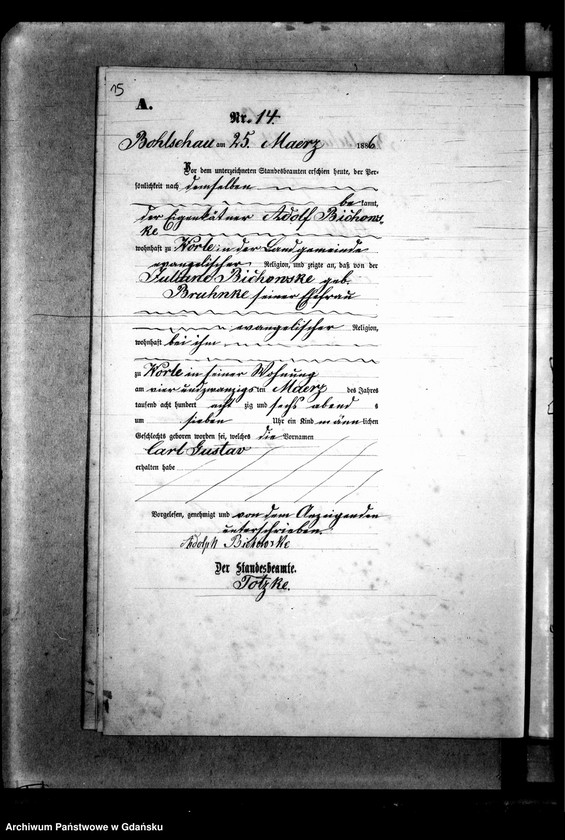 15
A.
Nr. 14.
Bohlschau am 25. Maerz 1886
Vor dem unterzeichneten Standesbeamten erschien heute, der Per-
sönlichkeit nach demselben
be kannt,
der Eigenkätner Adolf Bichows-
ke
wohnhaft zu Worle in der Landgemeinde
evangelischer Religion, und zeigte an, daß von der
Juliane Bichowske geb.
Bruhnke seiner Ehefrau
evangelischer Religion,
wohnhaft bei ihm
zu Worle in seiner Wohnung
am vier und zwanzigs ten Maerz des Jahres
tausend acht hundert acht zig und sechs abend s
um sieben Uhr ein Kind männ lichen
Geschlechts geboren worden sei, welches die Vornamen
Carl Gustav
erhalten habe
Vorgelesen, genehmigt und von dem Anzeigenden
unterschrieben.
Adolph Bichowske
Der Standesbeamte.
Totzke.
Archiwum Państwowe w Gdańsku